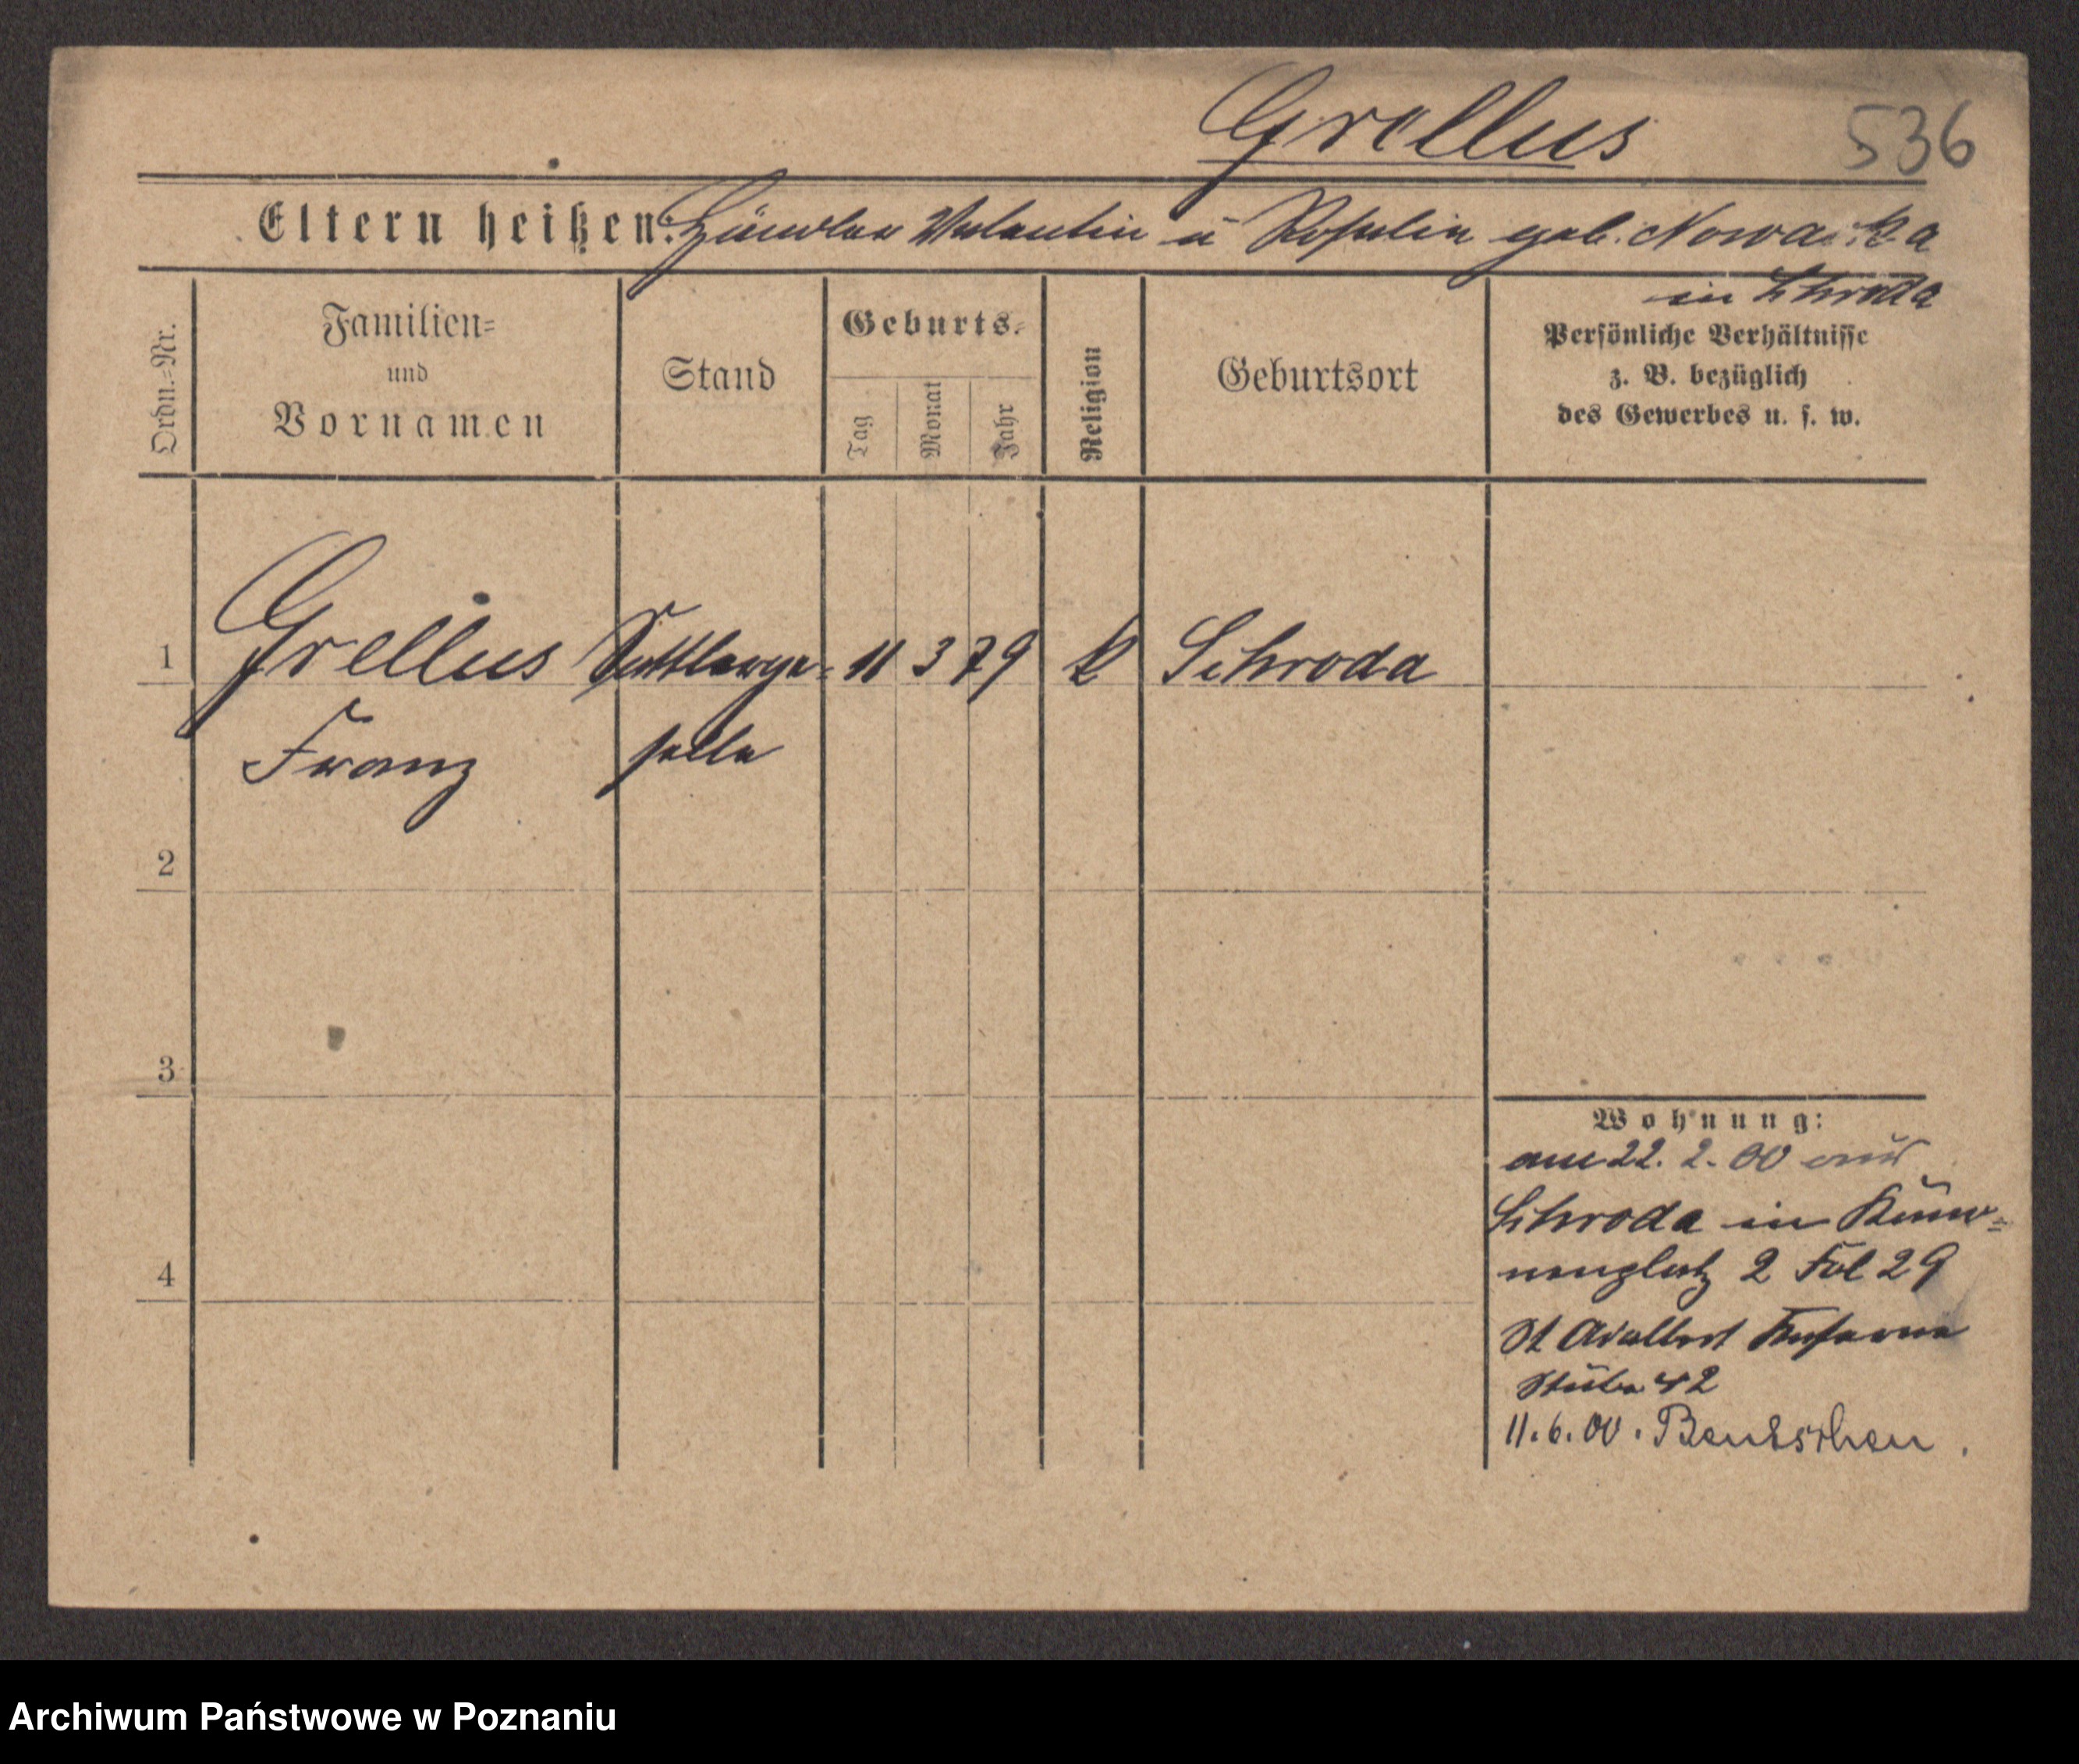 Grellus 536
Eltern heißen: Händler Valentin u Rosalia geb. Nowacka
in Schroda
Ordn.-Nr.
Familien-
und
Vornamen
Stand
Geburts-
Tag
Monat
Jahr
Religion
Geburtsort
Persönliche Verhältnisse
z. B. bezüglich
des Gewerbes u. s. w.
1 Grellus Sattlerge= 11 3 79 k Schroda
Franz selle
2
3
4
Wohnung:
am 22. 2. 00 aus
Schroda in
2 Fol 29
St Adalbert Kaserne
Stube 42
11. 6. 00. Bentschen.
Archiwum Państwowe w Poznaniu